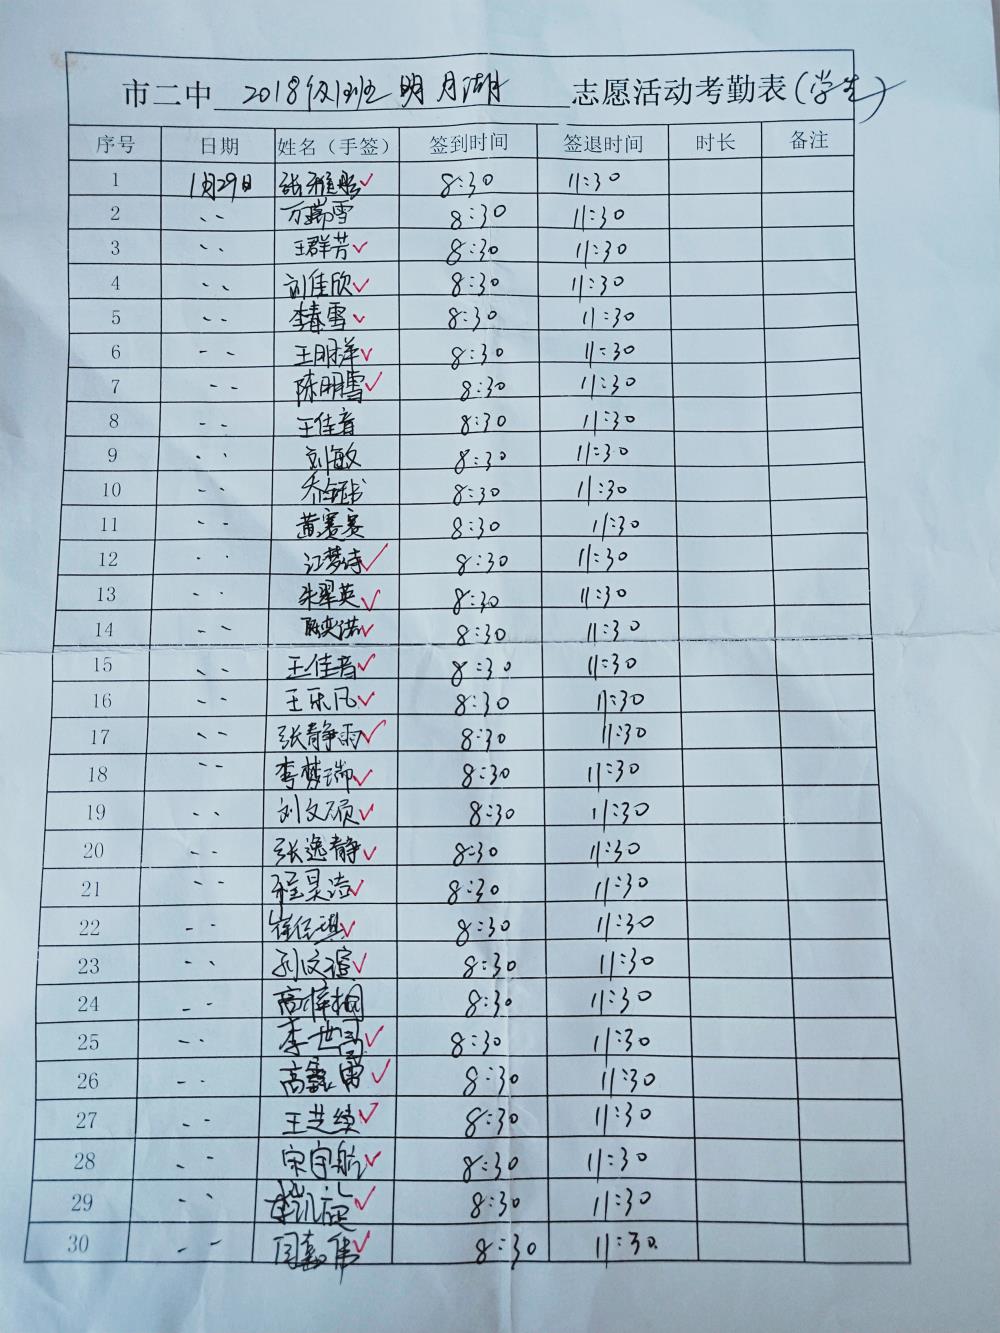 市二中 2018级1班 明月湖 志愿活动考勤表(学生)
序号 日期 姓名（手签） 签到时间 签退时间 时长 备注
1 1月29日 张雅彤✓ 8:30 11:30
2 、、 万瑞雪 8:30 11:30
3 、、 王群芳✓ 8:30 11:30
4 、、 刘佳欣✓ 8:30 11:30
5 、、 李春雪✓ 8:30 11:30
6 、、 王明洋✓ 8:30 11:30
7 、、 陈明雪✓ 8:30 11:30
8 、、 王佳音 8:30 11:30
9 、、 刘敏 8:30 11:30
10 、、 8:30 11:30
11 、、 黄赛赛 8:30 11:30
12 、、 江梦诗✓ 8:30 11:30
13 、、 朱翠英✓ 8:30 11:30
14 、、 陈奕诺✓ 8:30 11:30
15 、、 王佳音✓ 8:30 11:30
16 、、 王乐凡✓ 8:30 11:30
17 、、 张静雨✓ 8:30 11:30
18 、、 李梦瑞✓ 8:30 11:30
19 、、 刘文硕✓ 8:30 11:30
20 、、 张逸静✓ 8:30 11:30
21 、、 程昊洁✓ 8:30 11:30
22 、、 ✓ 8:30 11:30
23 、、 孙文瑄✓ 8:30 11:30
24 、、 高梓桐 8:30 11:30
25 、、 ✓ 8:30 11:30
26 、、 ✓ 8:30 11:30
27 、、 王芝续✓ 8:30 11:30
28 、、 宋宇航✓ 8:30 11:30
29 、、 ✓ 8:30 11:30
30 、、 ✓ 8:30 11:30